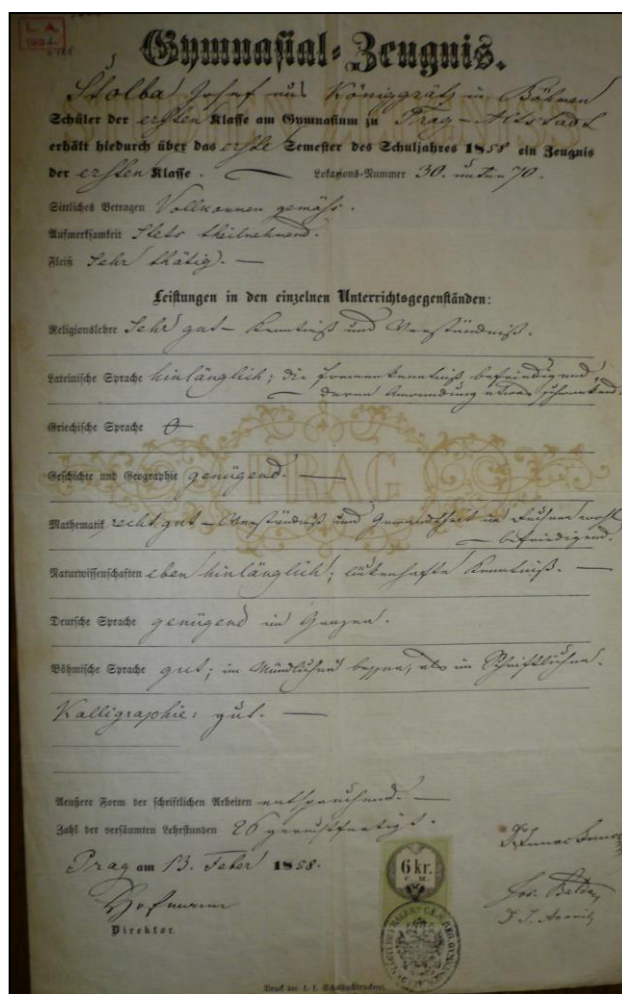 L. A.
Gymnasial-Zeugnis.
Stolba Josef aus Königgrätz in Böhmen
Schüler der ersten Klasse am Gymnasium zu Prag-Altstadt
erhält hiedurch über das erste Semester des Schuljahres 1858 ein Zeugnis
der ersten Klasse. Lokazions-Nummer 30. unter 70.
Sittliches Betragen Vollkommen gemäß.
Aufmerksamkeit Stets theilnehmend.
Fleiß Sehr thätig. —
Leistungen in den einzelnen Unterrichtsgegenständen:
Religionslehre Sehr gut – Kenntniß und Verständniß.
Lateinische Sprache hinlänglich; die Formenkenntniß befriedigend,
deren Anwendung etwas schwankend.
Griechische Sprache
Geschichte und Geographie genügend. —
PRAG
Mathematik recht gut – Verständniß und Gewandtheit im Rechnen wohl
befriedigend.
Naturwissenschaften eben hinlänglich; lückenhafte Kenntniß. —
Deutsche Sprache genügend im Ganzen.
Böhmische Sprache gut; im Mündlichen besser, als im Schriftlichen.
Kalligraphie: gut. —
Aeußere Form der schriftlichen Arbeiten entsprechend. —
Zahl der versäumten Lehrstunden 26 gerechtfertigt.
Prag am 13. Feber 1858.
6 kr.
C. M.
Hofmann
Jos.
Direktor.
Druck der k. k. Schulbuchdruckerei.